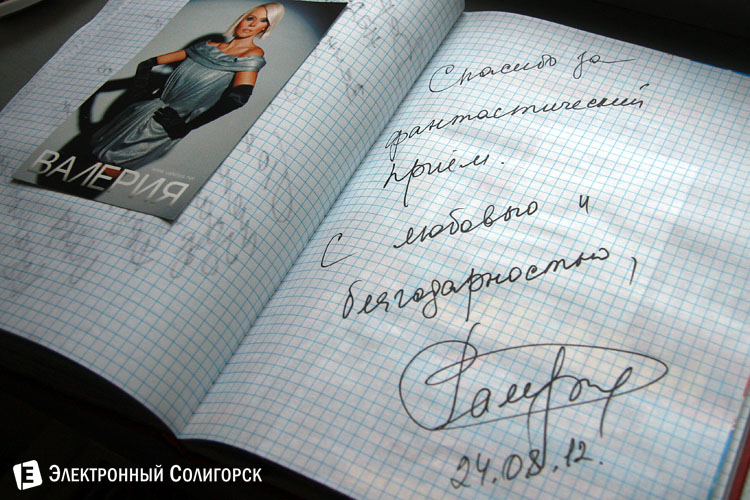 ВАЛЕРИЯ
Спасибо за
фантастический
приём.
С любовью и
благодарностью,
Валерия
24.08.12.
Электронный Солигорск